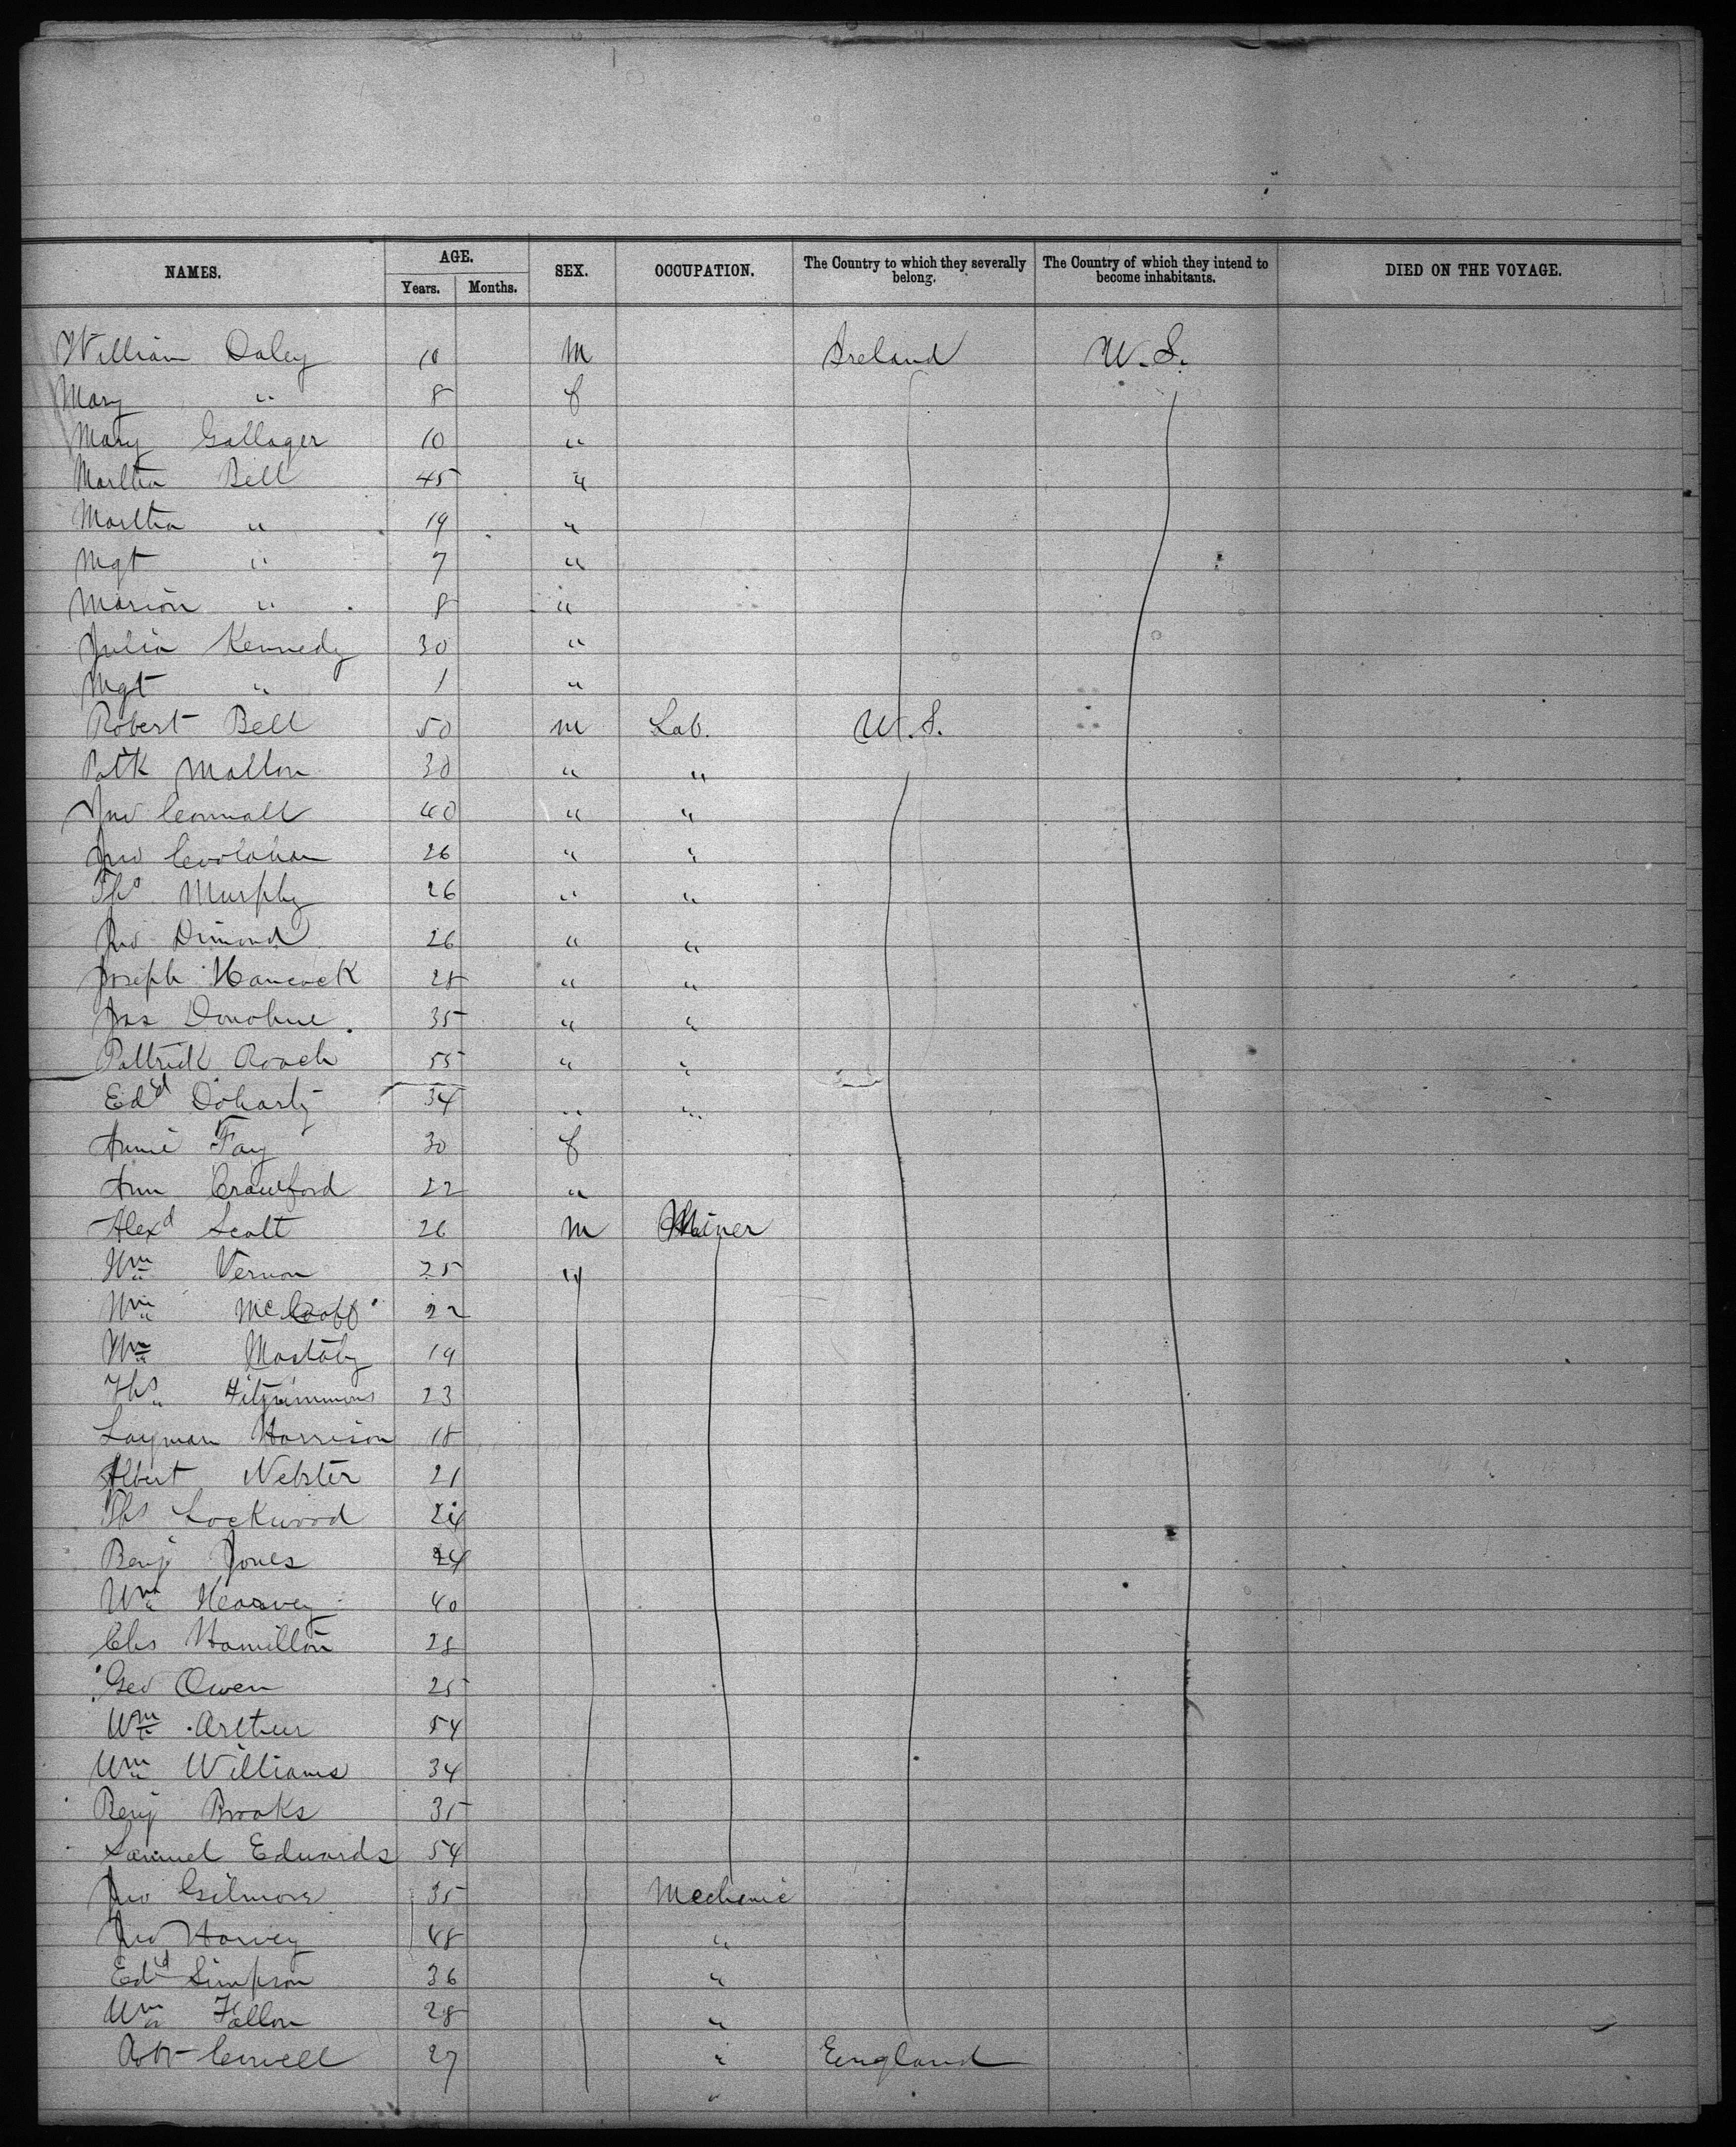 NAMES. AGE. SEX. OCCUPATION. The Country to which they severally belong. The Country of which they intend to become inhabitants. DIED ON THE VOYAGE.
Years. Months.
William Daley 10 M Ireland U.S.
Mary " 8 f
Mary Gallager 10 "
Martha Bell 45 "
Martha " 19 "
Mgt " 7 "
Marion " 8 "
Julia Kennedy 30 "
Mgt " 1 "
Robert Bell 50 m Lab. U.S.
Patk Mallon 30 " "
Jno Connall 40 " "
Jno 26 " "
Ths Murphy 26 " "
Jno Dimond 26 " "
Joseph Hancock 28 " "
Jas Donohue. 35 " "
Pattrick Roach 55 " "
Edd Doharty 34 " "
Annie Fay 30 f
Ann Crawford 22 "
Alexd Scott 26 m Miner
Wm Vernon 25 "
Wm 22
Wm 19
Ths Fitzsimmons 23
Layman Harrison 18
Albert Webster 21
Ths Lockwood 24
Benj Jones 24
Wm 40
Chs Hamilton 28
Geo Owen 25
Wm Arthur 54
Wm Williams 34
Benj Brooks 35
Samuel Edwards 54
Jno Gilmore 35 Mechanic
Jno Harvey 48 "
Edd Simpson 36 "
Wm Fallon 28 "
Robt 27 " England
"